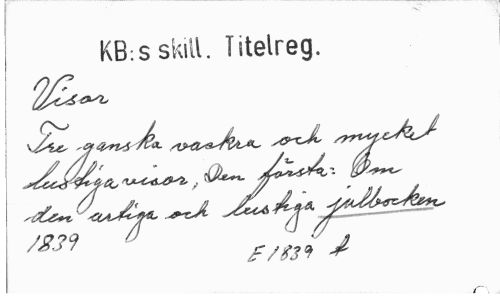 KB:s skill. Titelreg.
Visor
Tre ganska vackra och mycket
lustiga visor, Den första: Om
den artiga och lustiga julbocken
1839
E 1839 t